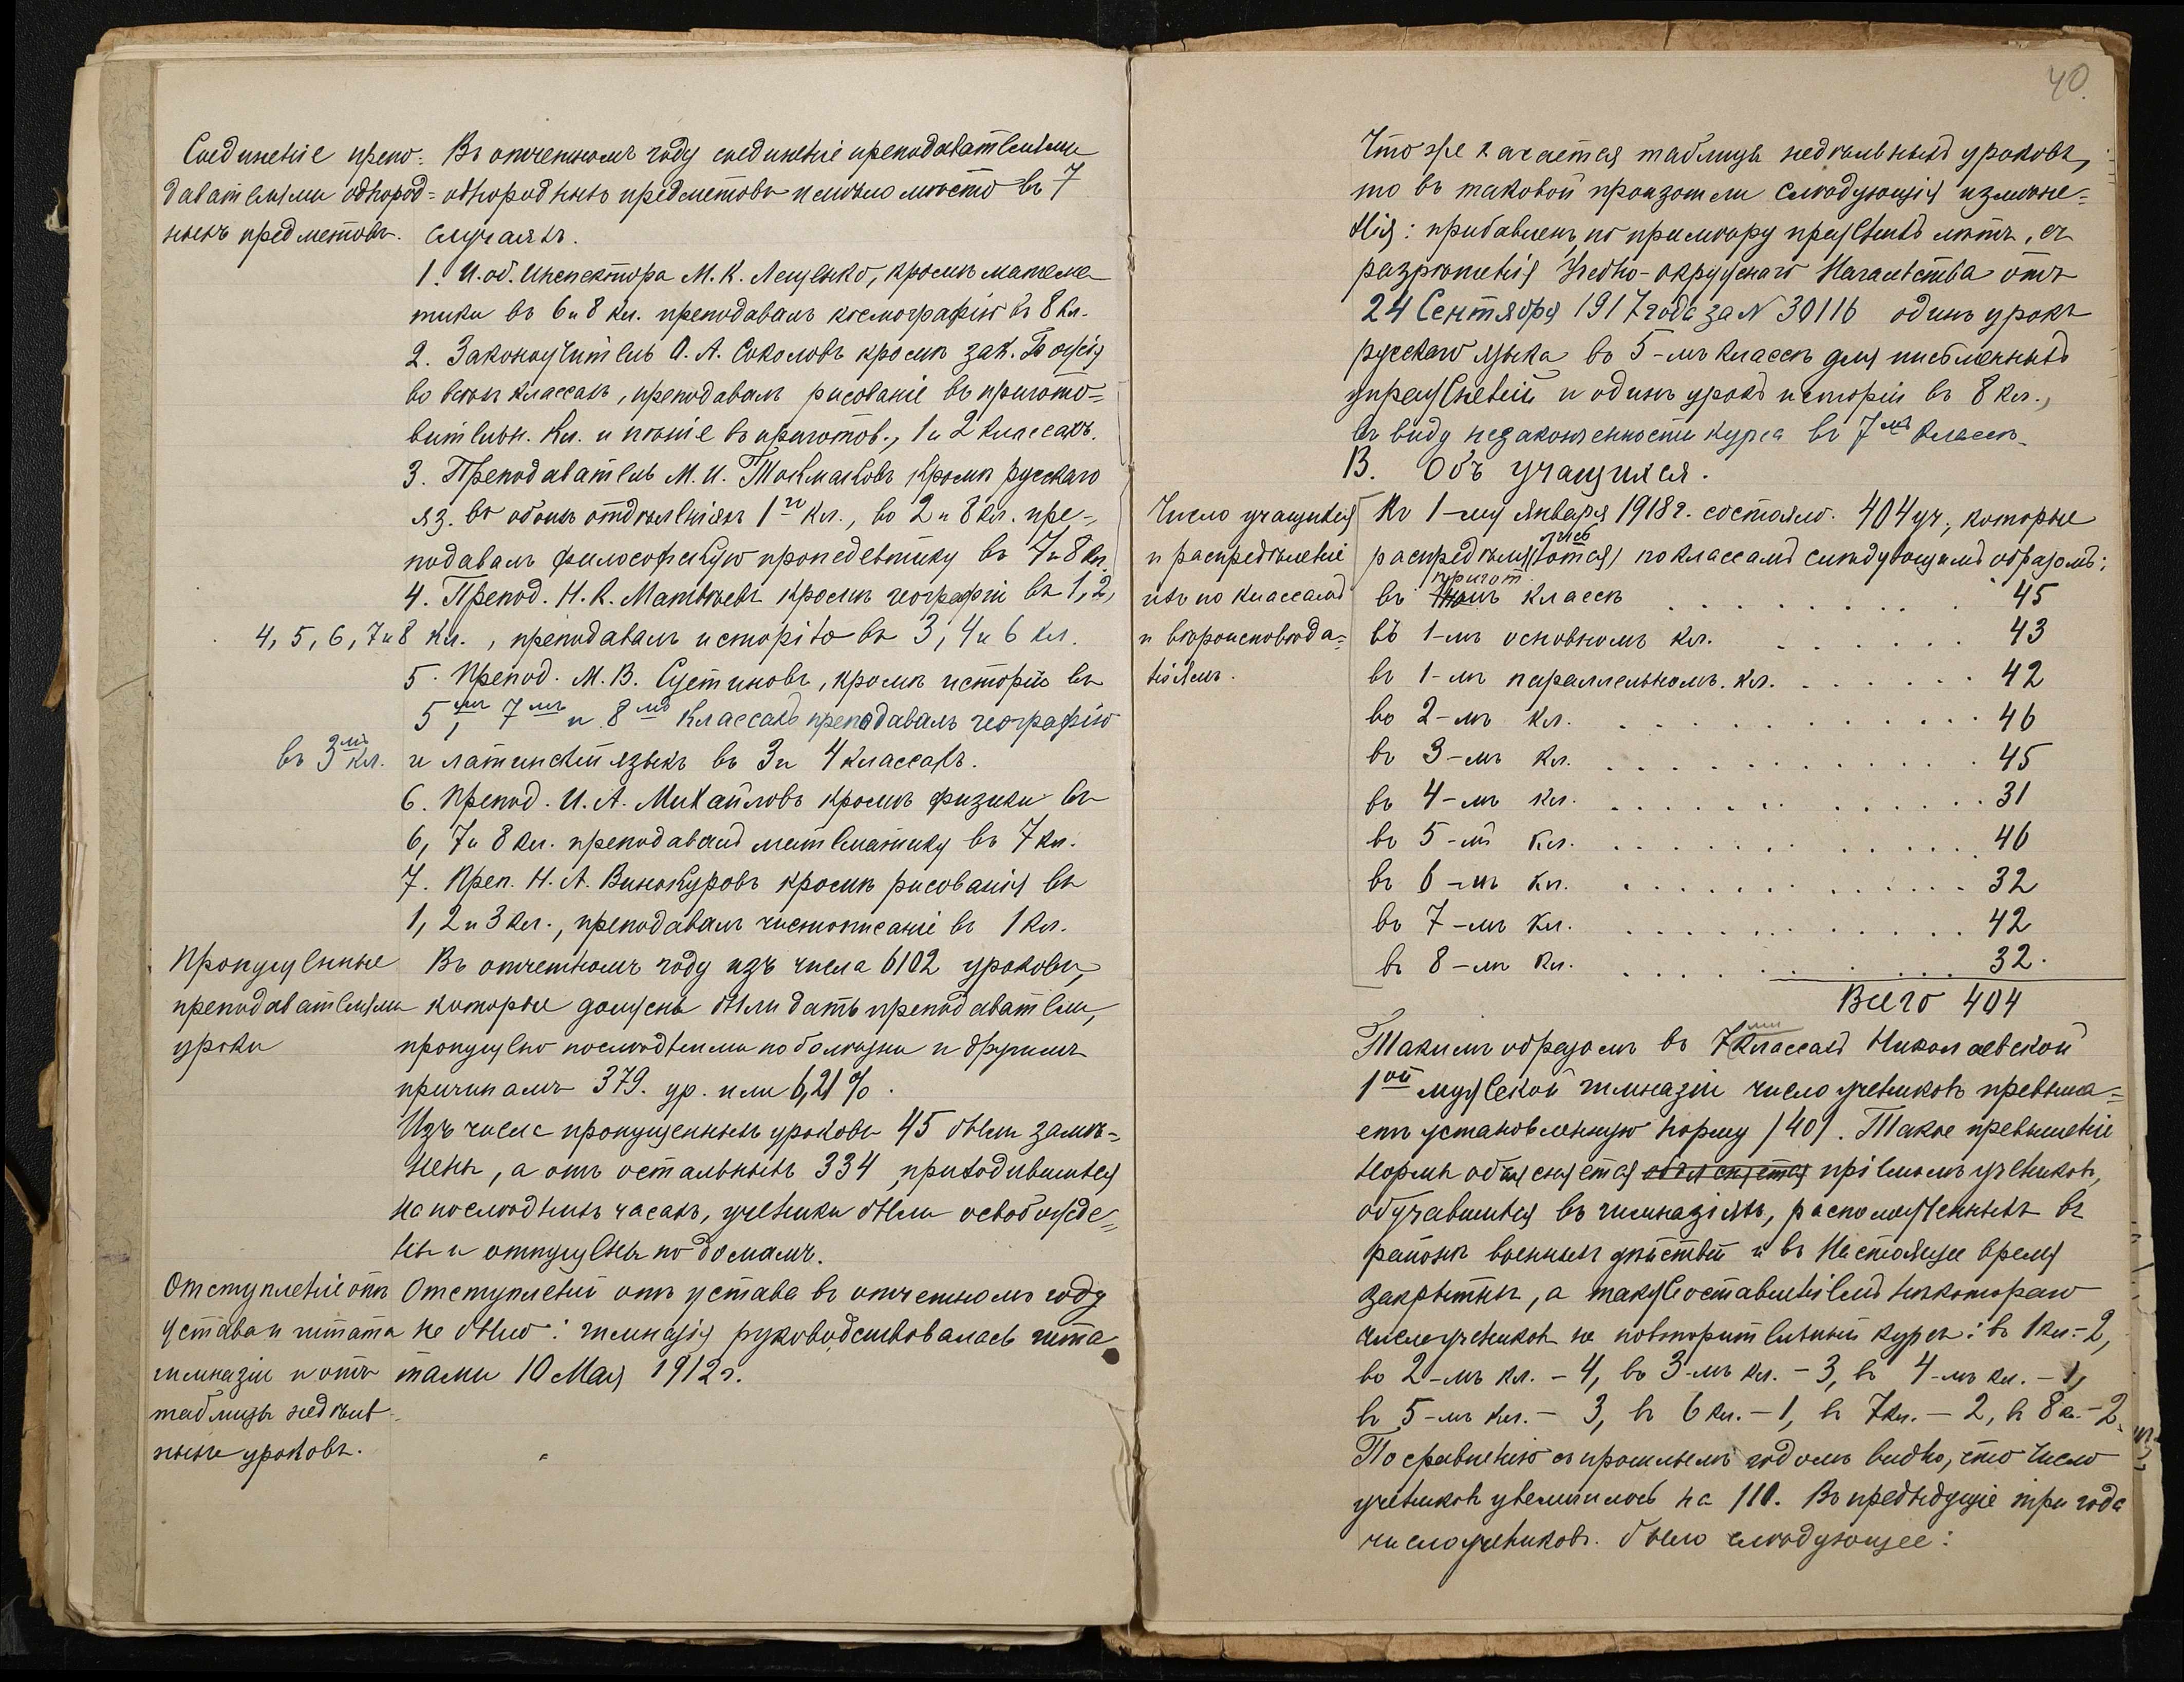 Соединеніе препо-
давателями однород-
ныхъ предметовъ.
Въ отчетномъ году соединеніе преподавателями
однородныхъ предметовъ имѣло мѣсто въ 7
случаяхъ.
1. И. об. Инспектора М. К. Лещенко, кромѣ матема
тики въ 6 и 8 кл. преподавалъ космографію въ 8 кл.
2. Законоучитель О. А. Соколовъ кромѣ зак. Божія
во всѣхъ классахъ, преподавалъ рисованіе въ пригото=
вительн. кл. и пѣніе въ пригот., 1 и 2 классахъ.
3. Преподаватель М. И. Токмаковъ кромѣ русскаго
яз. въ обоихъ отдѣленіяхъ 1го кл., во 2 и 8 кл. пре=
подавалъ философскую пропедевтику въ 7 и 8 кл.
4. Препод. Н. К. Матвѣевъ кромѣ географіи въ 1, 2,
4, 5, 6, 7 и 8 кл., преподавалъ исторію въ 3, 4 и 6 кл.
5. Препод. М. В. Сустиновъ, кромѣ исторіи въ
5мъ, 7мъ и 8мъ классахъ преподавалъ географію
въ 3мъ кл. и латинскій языкъ въ 3 и 4 классахъ.
6. Препод. И. А. Михайловъ кромѣ физики въ
6, 7 и 8 кл. преподавалъ математику въ 7 кл.
7. Преп. Н. А. Винокуровъ кромѣ рисованія въ
1, 2 и 3 кл., преподавалъ чистописаніе въ 1 кл.
Пропущенные
преподавателями
уроки
Въ отчетномъ году изъ числа 6102 уроковъ,
которые должны были дать преподаватели,
пропущено послѣдними по болѣзни и другимъ
причинамъ 379. ур. или 6,21%.
Изъ числа пропущенныхъ уроковъ 45 были замѣ=
нены, а отъ остальныхъ 334, приходившихся
на послѣднихъ часахъ, ученики были освобожде=
ны и отпущены по домамъ.
Отступленіе отъ
устава и штата
гимназіи и отъ
таблицы недѣль-
ныхъ уроковъ.
Отступленій отъ устава въ отчетномъ году
не было: гимназія руководствовалась шта
тами 10 Мая 1912 г.
40.
Что же касается таблицы недѣльныхъ уроковъ,
то въ таковой произошли слѣдующія измѣне=
нія: прибавленъ, по примѣру прежнихъ лѣтъ, съ
разрѣшенія Учебно-окружнаго Начальства отъ
24 Сентября 1917 года за N 30116 одинъ урокъ
русскаго языка въ 5-мъ классѣ для письменныхъ
упражненій и одинъ урокъ исторіи въ 8 кл.,
въ виду незаконченности курса въ 7мъ классѣ.
В. Объ учащихся.
Число учащихся
и распредѣленіе
ихъ по классамъ
и вѣроисповѣда=
ніямъ.
Къ 1-му Января 1918 г. состояло 404 уч., которые
распредѣля(ются) лись по классамъ слѣдующимъ образомъ:
въ пригот. классѣ . . . . . . . 45
въ 1-мъ основномъ кл. . . . . . . 43
въ 1-мъ параллельномъ кл. . . . . . . 42
во 2-мъ кл. . . . . . . . . . 46
въ 3-мъ кл. . . . . . . . . . 45
въ 4-мъ кл. . . . . . . . . . 31
въ 5-мъ кл. . . . . . . . . . 46
въ 6-мъ кл. . . . . . . . . . 32
въ 7-мъ кл. . . . . . . . . . 42
въ 8-мъ кл. . . . . . . . . . 32.
Всего 404
Такимъ образомъ въ 7ми классахъ Николаевской
1ой мужской гимназіи число учениковъ превыша=
етъ установленную норму /40/. Такое превышеніе
нормы объясняется объясняется пріемомъ учениковъ,
обучавшихся въ гимназіяхъ, расположенныхъ въ
районѣ военныхъ дѣйствій и въ настоящее время
закрытыхъ, а также оставленіемъ нѣкотораго
числа учениковъ на повторительный курсъ: въ 1 кл.- 2,
во 2-мъ кл. - 4, въ 3-мъ кл. - 3, въ 4-мъ кл. - 1,
въ 5-мъ кл. - 3, въ 6 кл. - 1, въ 7 кл. - 2, въ 8 к. - 2.
По сравненію съ прошлымъ годомъ видно, что число
учениковъ увеличилось на 110. Въ предыдущіе три года
число учениковъ было слѣдующее: